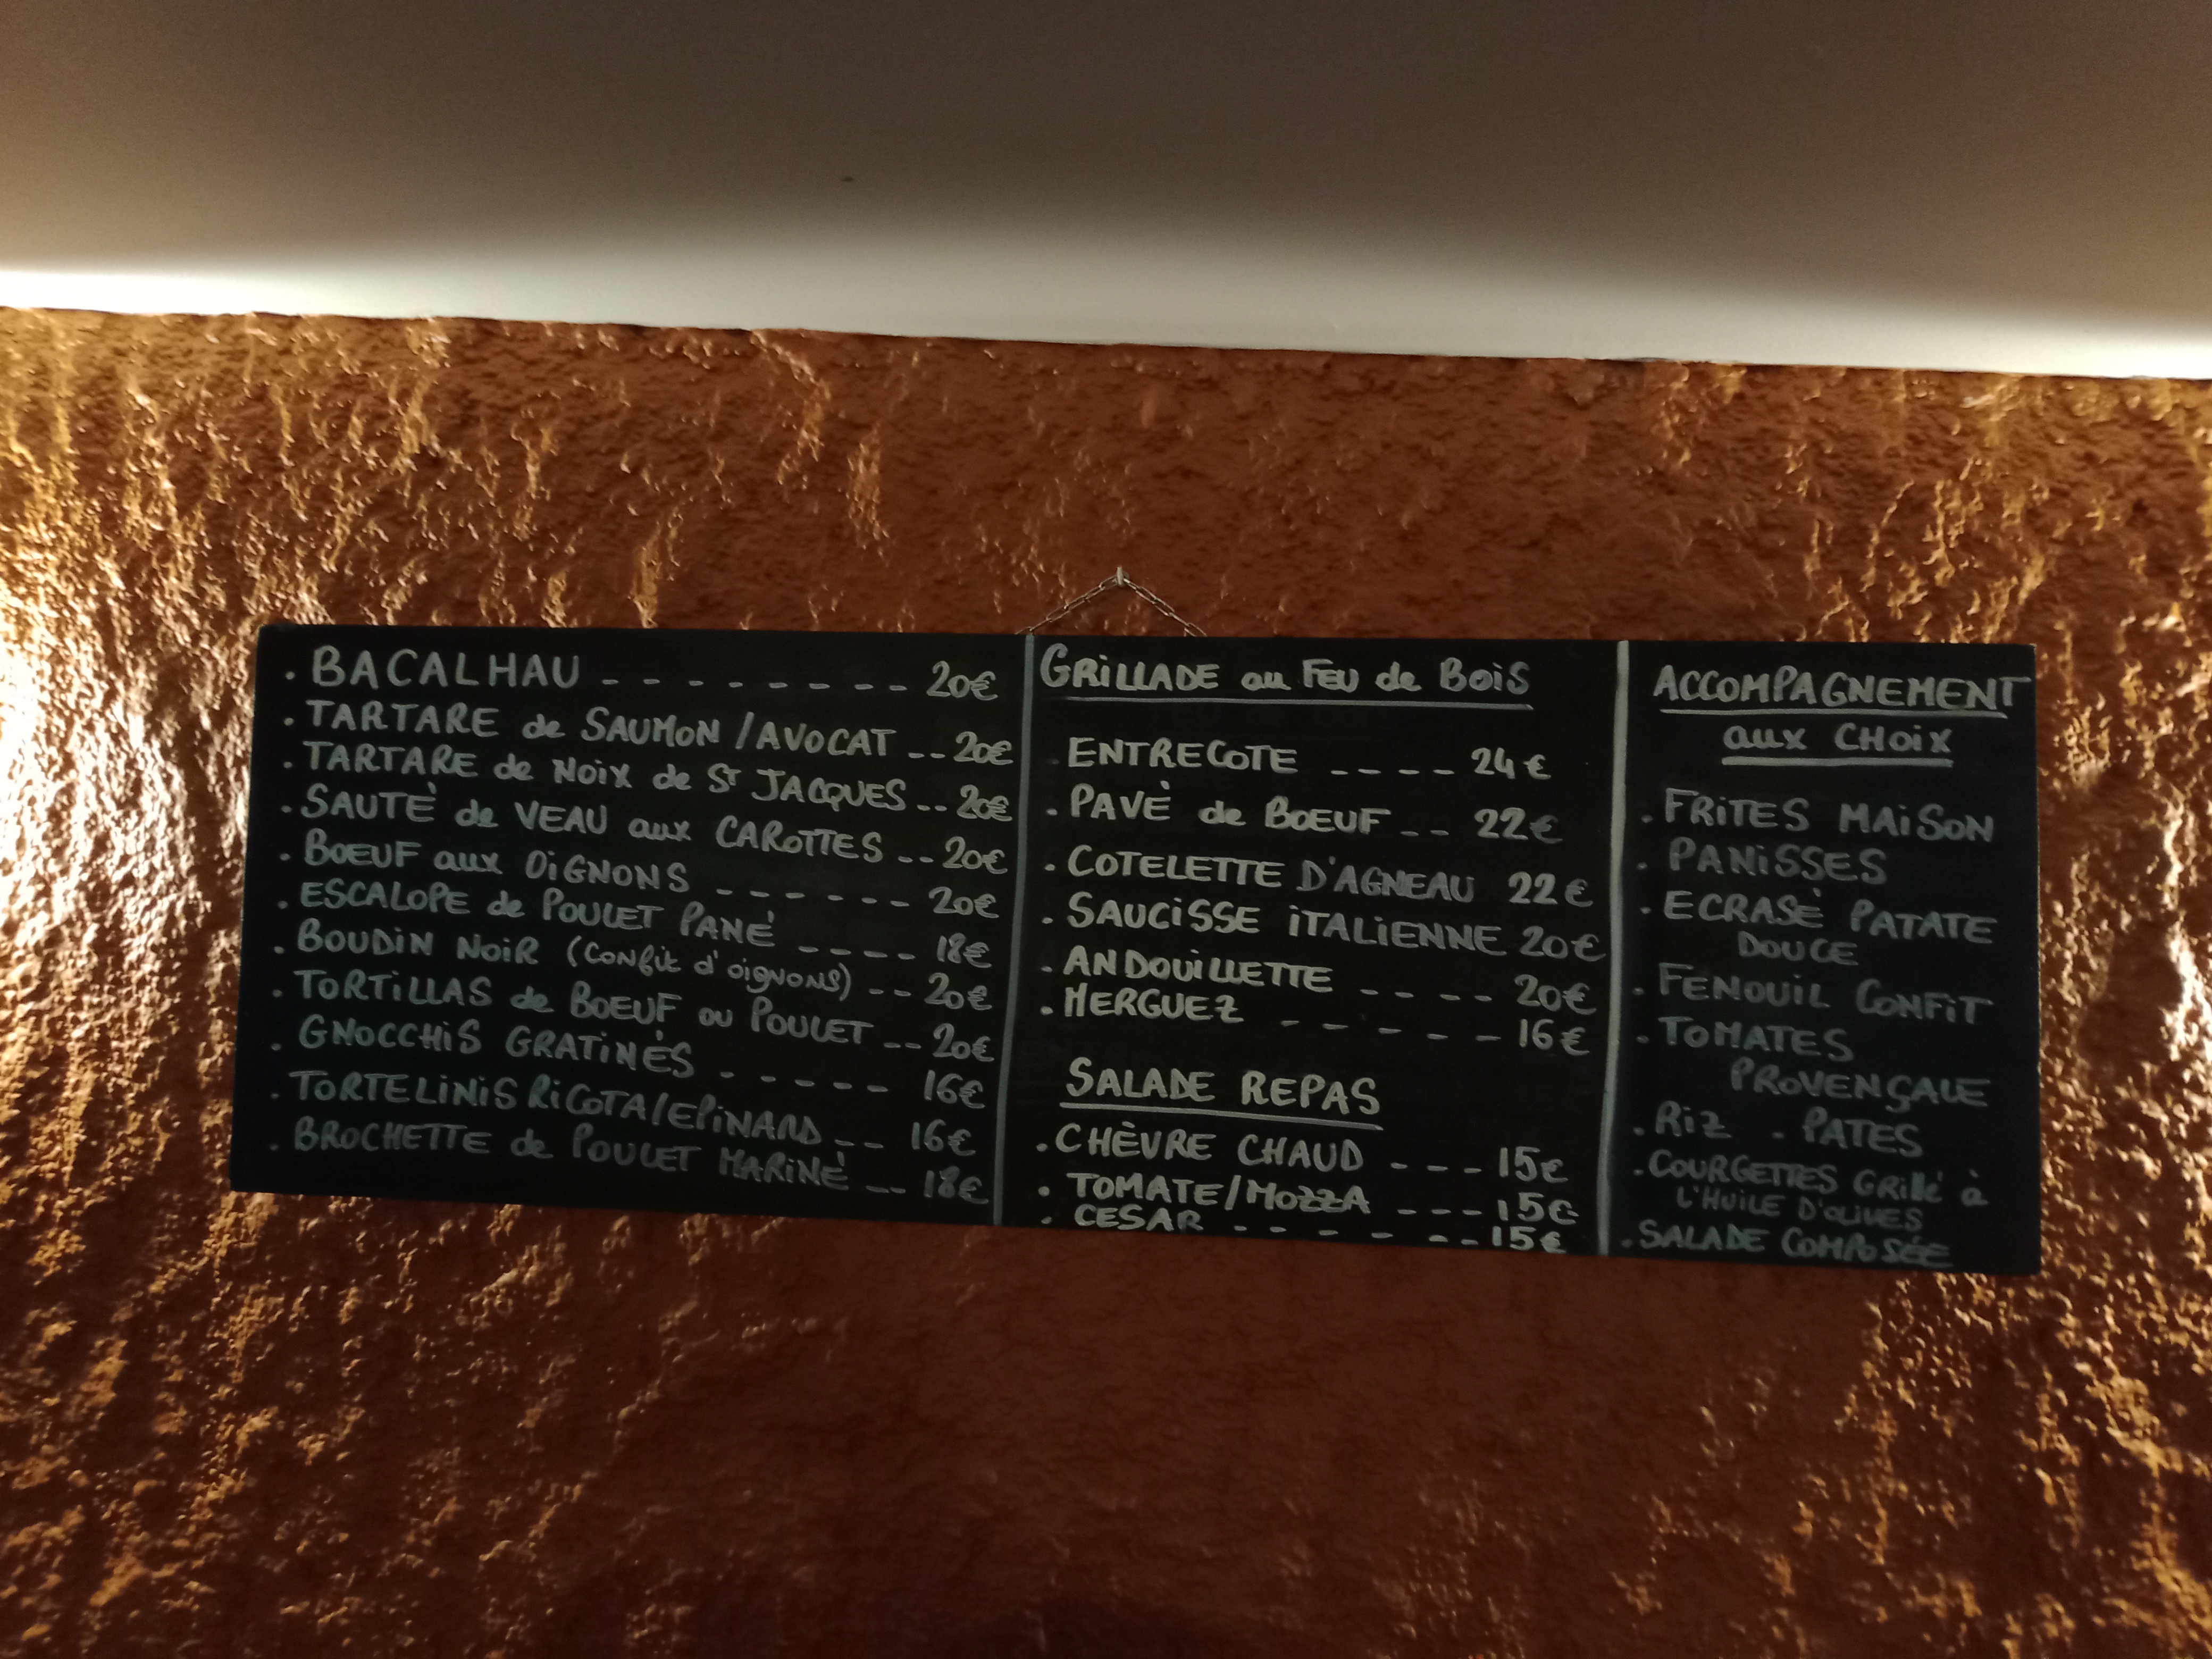 . BACALHAU - - - - - - - - 20€
. TARTARE de SAUMON / AVOCAT -- 20€
. TARTARE de NOIX de ST JACQUES -- 20€
. SAUTÉ de VEAU aux CAROTTES -- 20€
. BOEUF aux OIGNONS - - - - - - 20€
. ESCALOPE de POULET PANÉ - - - - 18€
. BOUDIN NOIR (Confit d'oignons) -- 20€
. TORTILLAS de BOEUF ou POULET -- 20€
. GNOCCHIS GRATINÉS - - - - - 16€
. TORTELINIS RICOTA/EPINARD -- 16€
. BROCHETTE de POULET MARINÉ -- 18€
GRILLADE au FEU de BOIS
. ENTRECOTE - - - - 24€
. PAVÉ de BOEUF -- 22€
. COTELETTE D'AGNEAU 22€
. SAUCISSE ITALIENNE 20€
. ANDOUILLETTE - - - - 20€
. MERGUEZ - - - - - 16€
SALADE REPAS
. CHÈVRE CHAUD - - - 15€
. TOMATE/MOZZA - - - 15€
. CESAR - - - - - - 15€
ACCOMPAGNEMENT
aux CHOIX
. FRITES MAISON
. PANISSES
. ECRASÉ PATATE
DOUCE
. FENOUIL CONFIT
. TOMATES
PROVENÇALE
. RIZ . PATES
. COURGETTES Grillé à
L'HUILE D'OLIVES
. SALADE COMPOSÉE